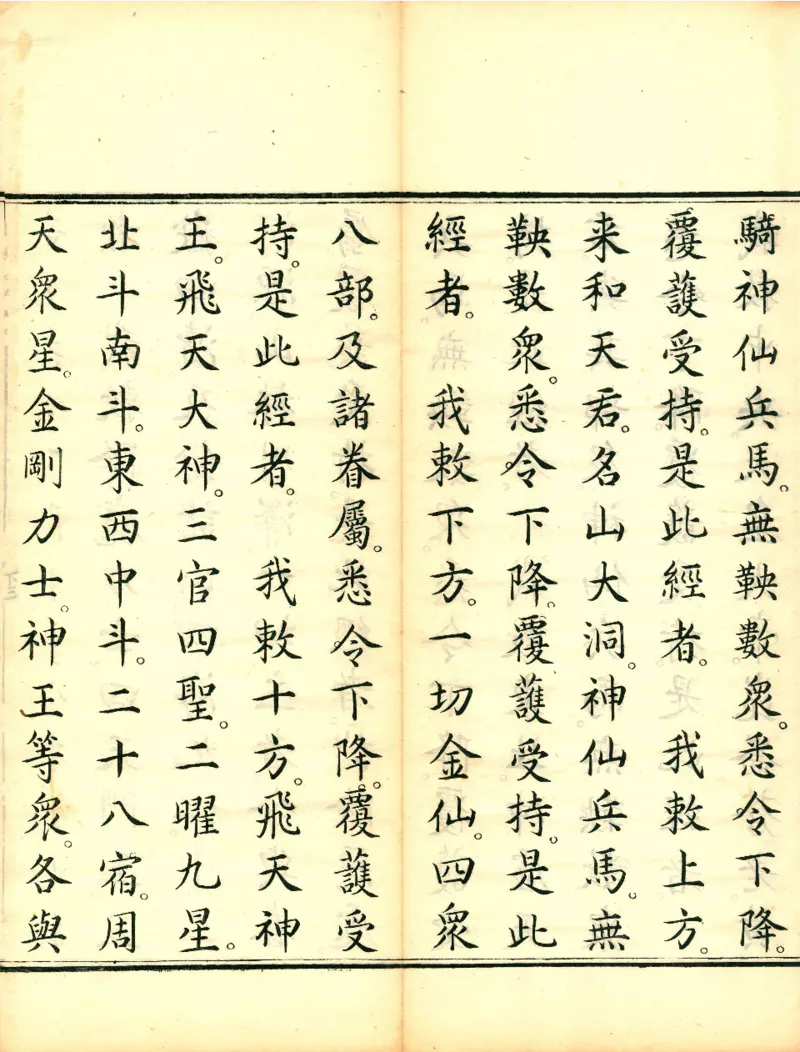 騎神仙兵馬。無鞅數衆。悉令下降。
覆護受持。是此經者。　我敕上方。
来和天君。名山大洞。神仙兵馬。無
鞅數衆。悉令下降。覆護受持。是此
經者。　我敕下方。一切金仙。四衆
八部。及諸眷屬。悉令下降。覆護受
持。是此經者。　我敕十方。飛天神
王。飛天大神。三官四聖。二曜九星。
北斗南斗。東西中斗。二十八宿。周
天衆星。金剛力士。神王等衆。各與